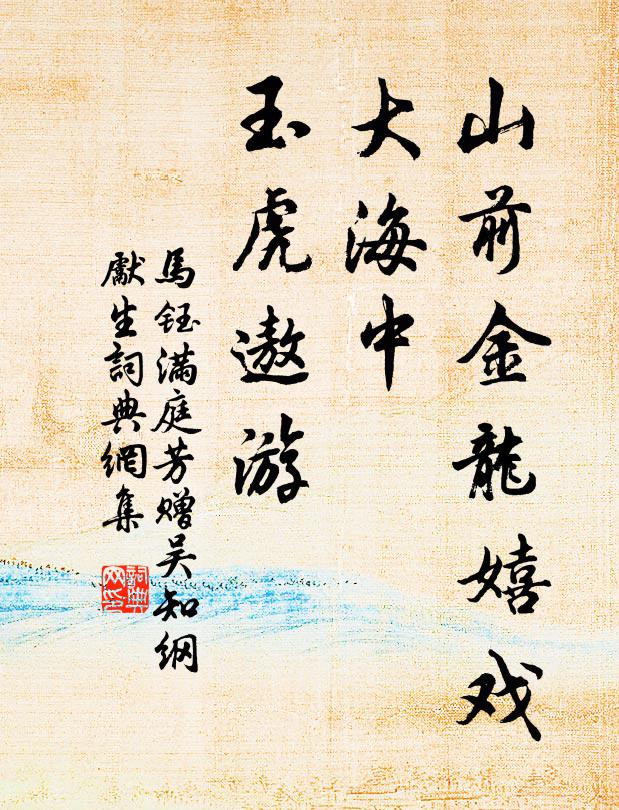 山前金龍嬉戏
大海中
玉虎遨游
馬鈺滿庭芳赠吴知纲
獻生詞典網集
詞典网